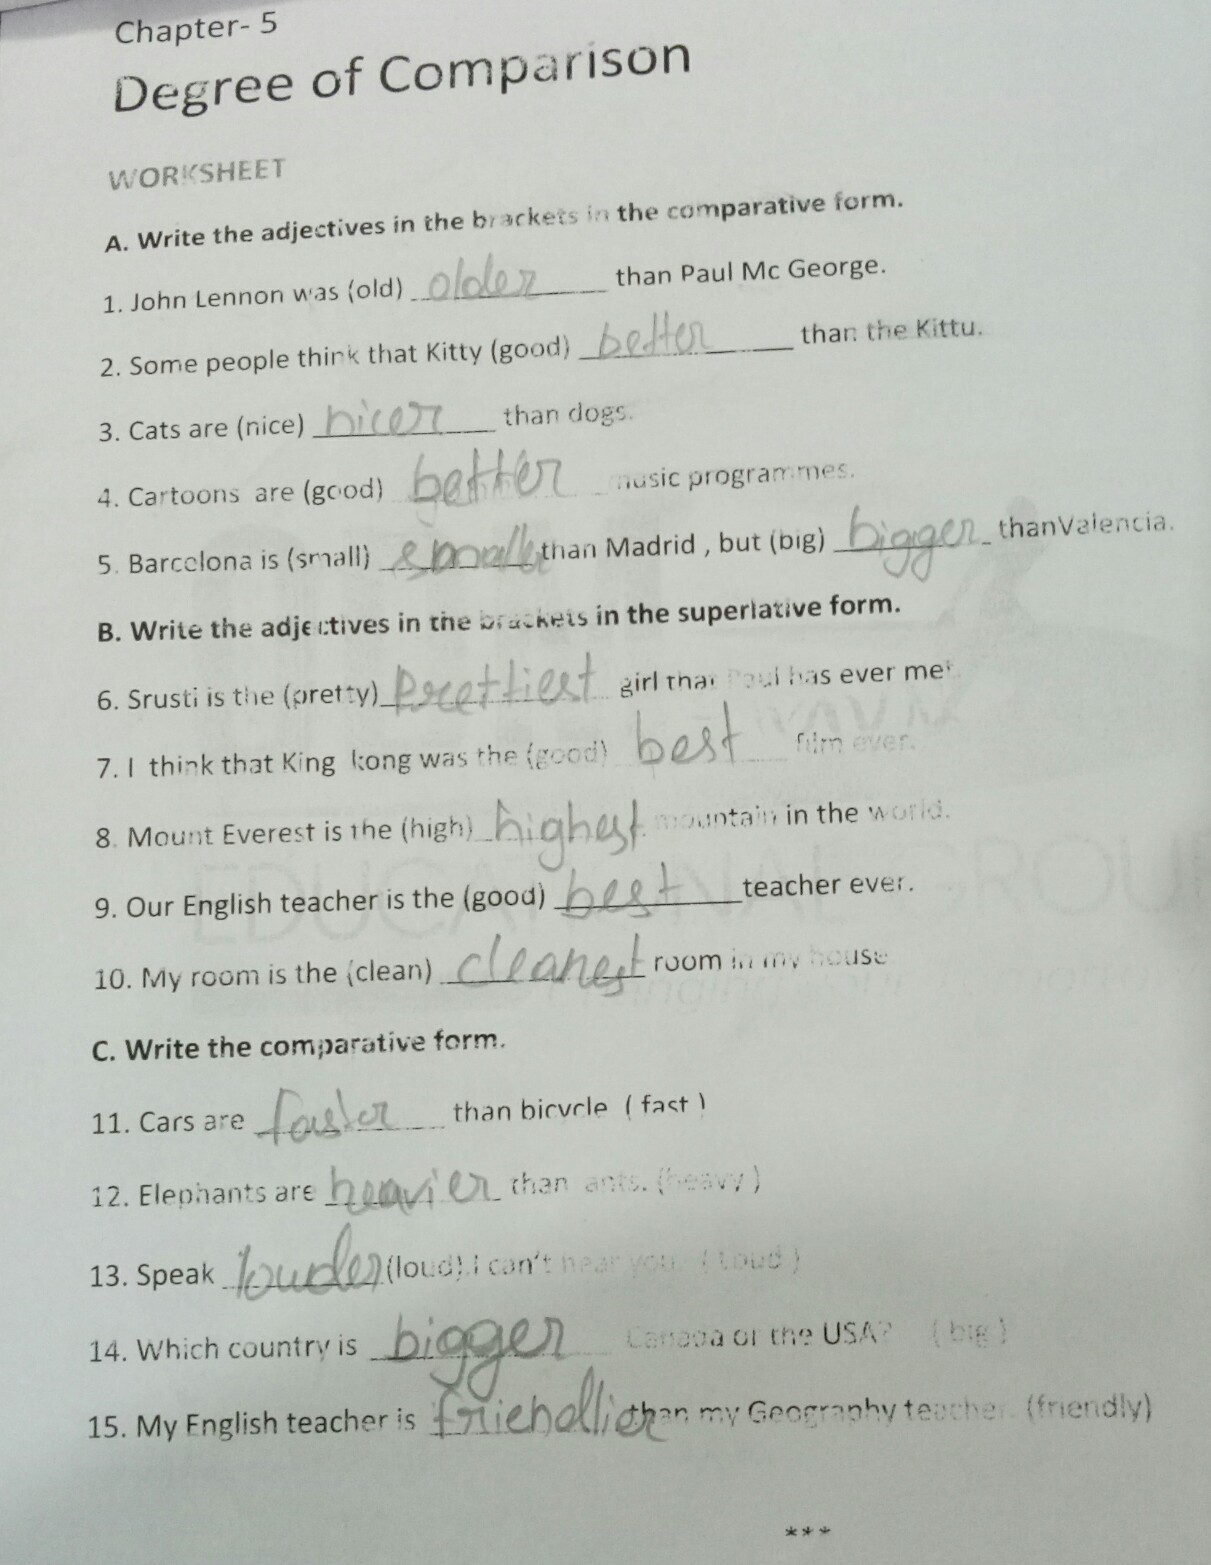 Chapter- 5
Degree of Comparison
WORKSHEET
A. Write the adjectives in the brackets in the comparative form.
1. John Lennon was (old) older than Paul Mc George.
2. Some people think that Kitty (good) better than the Kittu.
3. Cats are (nice) nicer than dogs.
4. Cartoons are (good) better music programmes.
5. Barcelona is (small) than Madrid , but (big) bigger thanValencia.
B. Write the adjectives in the brackets in the superlative form.
6. Srusti is the (pretty) Prettiest girl that Paul has ever met
7. I think that King kong was the (good) best film ever.
8. Mount Everest is the (high) highest mountain in the world.
9. Our English teacher is the (good) best teacher ever.
10. My room is the (clean) cleanest room in my house
C. Write the comparative form.
11. Cars are faster than bicycle ( fast )
12. Elephants are heavier than ants. (heavy )
13. Speak louder (loud).I can't hear you. ( Loud )
14. Which country is bigger Canada or the USA? ( big )
15. My English teacher is friendlier than my Geography teacher (friendly)
***
EDUCATIONAL GROUP